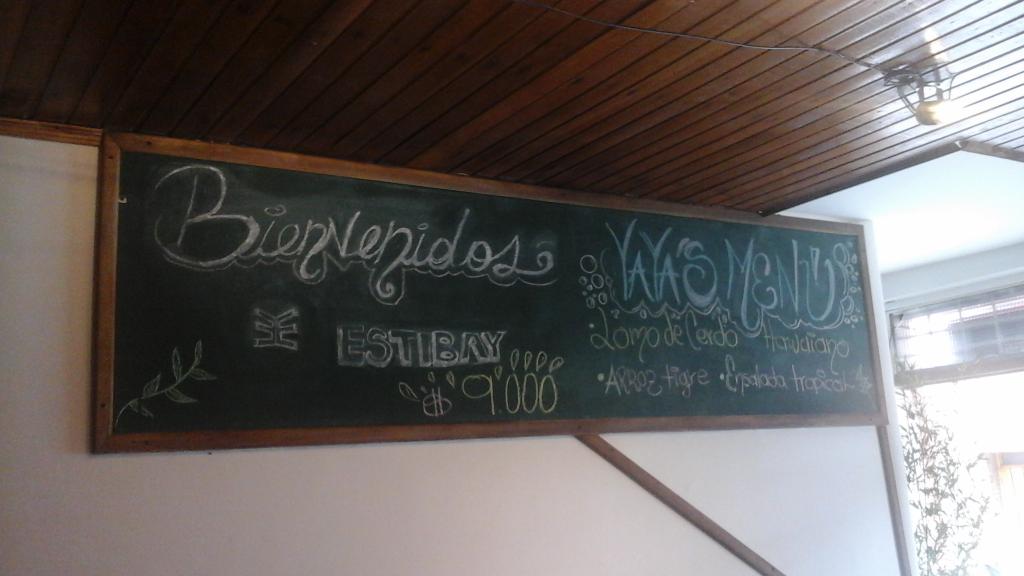 Bienvenidos
ESTIBAY
$ 9.000
YAYA'S MENU
• Lomo de Cerdo Hawaiano
• ARROZ tigre • Ensalada tropical